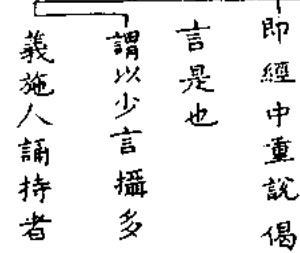 即經中重說偈
言是也
謂以少言攝多
義施人誦持者